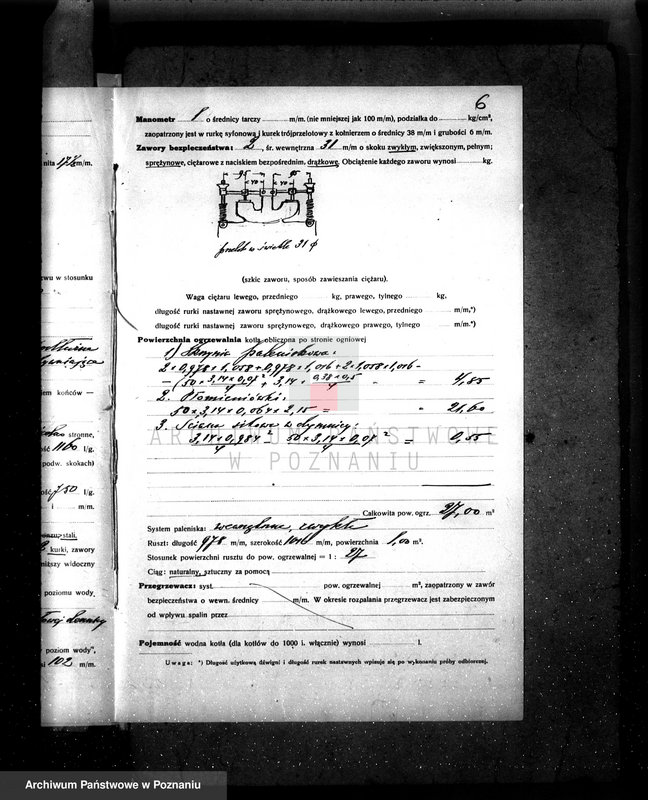 6
Manometr 1 o średnicy tarczy m/m. (nie mniejszej jak 100 m/m), podziałka do kg/cm²,
zaopatrzony jest w rurkę syfonową i kurek trójprzelotowy z kołnierzem o średnicy 38 m/m i grubości 6 m/m.
Zawory bezpieczeństwa: 2, śr. wewnętrzna 31 m/m o skoku zwykłym, zwiększonym, pełnym;
sprężynowe, ciężarowe z naciskiem bezpośrednim, drążkowe. Obciążenie każdego zaworu wynosi kg.
95 95
40 40
przelot w świetle 31 φ
(szkic zaworu, sposób zawieszania ciężaru).
Waga ciężaru lewego, przedniego kg, prawego, tylnego kg.
długość rurki nastawnej zaworu sprężynowego, drążkowego lewego, przedniego m/m,*)
długość rurki nastawnej zaworu sprężynowego, drążkowego prawego, tylnego m/m.*)
Powierzchnia ogrzewalna kotła obliczona po stronie ogniowej
1) Skrzynia paleniskowa:
2 × 0,978 × 1,058 + 0,978 × 1,016 + 2 × 1,058 × 1,016 -
- (50 × 3,14 × 0,07² / 4 + 3,14 × 0,38 × 0,5 / 4 " = 4,85
2. Płomieniówki:
50 × 3,14 × 0,064 × 2,15 = " 21,60
3. Ściana sitowa w dymnicy:
3,14 × 0,984² / 4 50 × 3,14 × 0,07² / 4 = 0,55
ARCHIWUM PAŃSTWOWE
W POZNANIU
Całkowita pow. ogrz. 27,00 m²
System paleniska: wewnętrzne, zwykłe
Ruszt: długość 978 m/m, szerokość 1016 m/m, powierzchnia 1,00 m².
Stosunek powierzchni rusztu do pow. ogrzewalnej = 1 : 27
Ciąg: naturalny, sztuczny za pomocą
Przegrzewacz: syst. pow. ogrzewalnej m², zaopatrzony w zawór
bezpieczeństwa o wewn. średnicy m/m. W okresie rozpalania przegrzewacz jest zabezpieczonym
od wpływu spalin przez
Pojemność wodna kotła (dla kotłów do 1000 l. włącznie) wynosi l.
Uwaga: *) Długość użytkową dźwigni i długość rurek nastawnych wpisuje się po wykonaniu próby odbiorczej.
nita 17½ m/m.
wu w stosunku
em końców —
stronne,
ść 1160 l/g.
podw. skokach)
ość 750 l/g.
i m/m.
stali,
kurki, zawory
niższy widoczny
poziomu wody
poziom wody",
i 102 m/m.
Archiwum Państwowe w Poznaniu